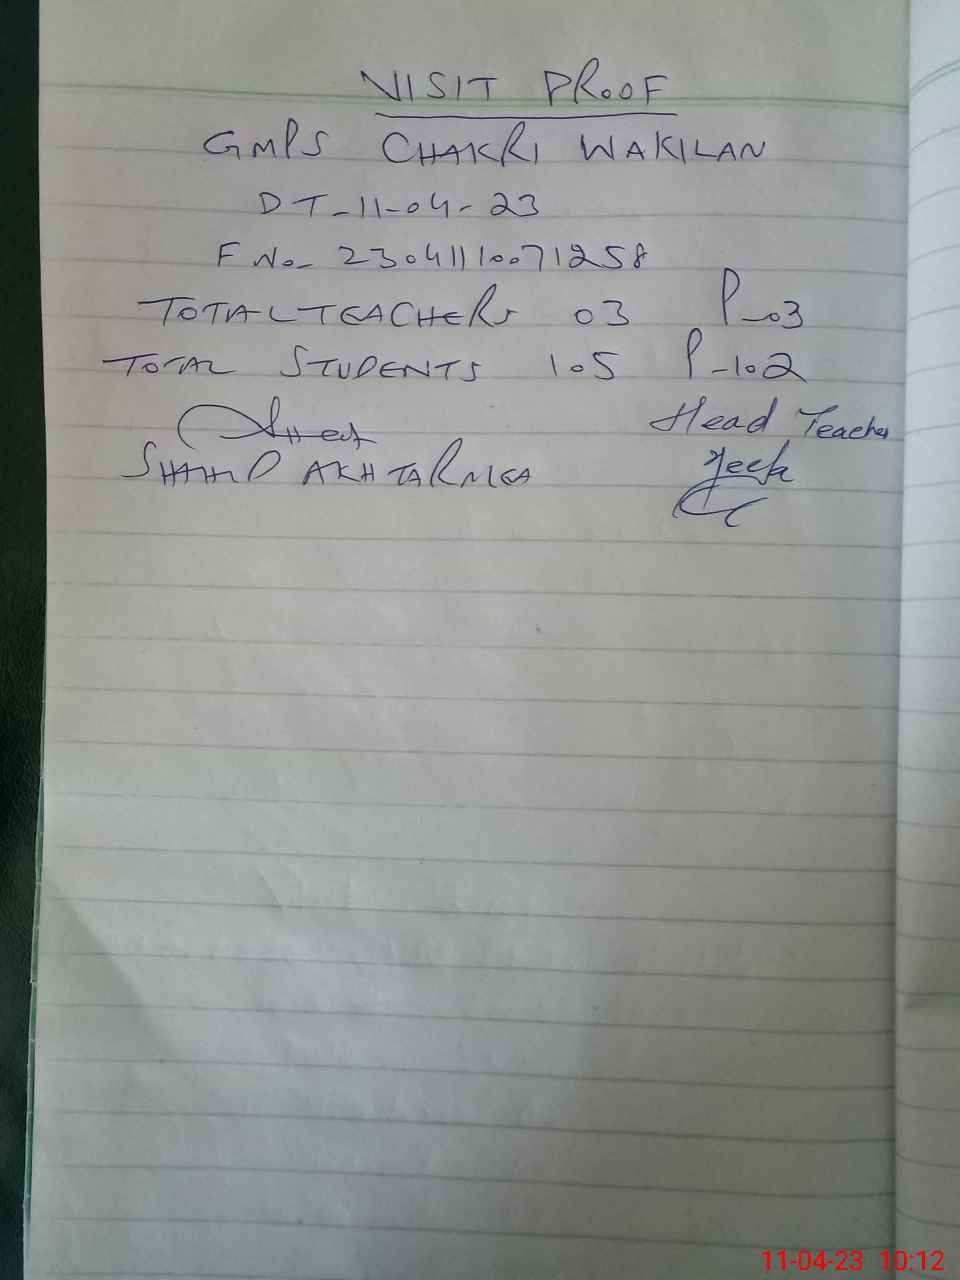 VISIT PROOF
GMPS CHAKRI WAKILAN
DT-11-04-23
F No- 23041110071258
TOTAL TEACHERS 03 P-03
TOTAL STUDENTS 105 P-102
Head Teacher
AKHTAR MEA
11-04-23 10:12